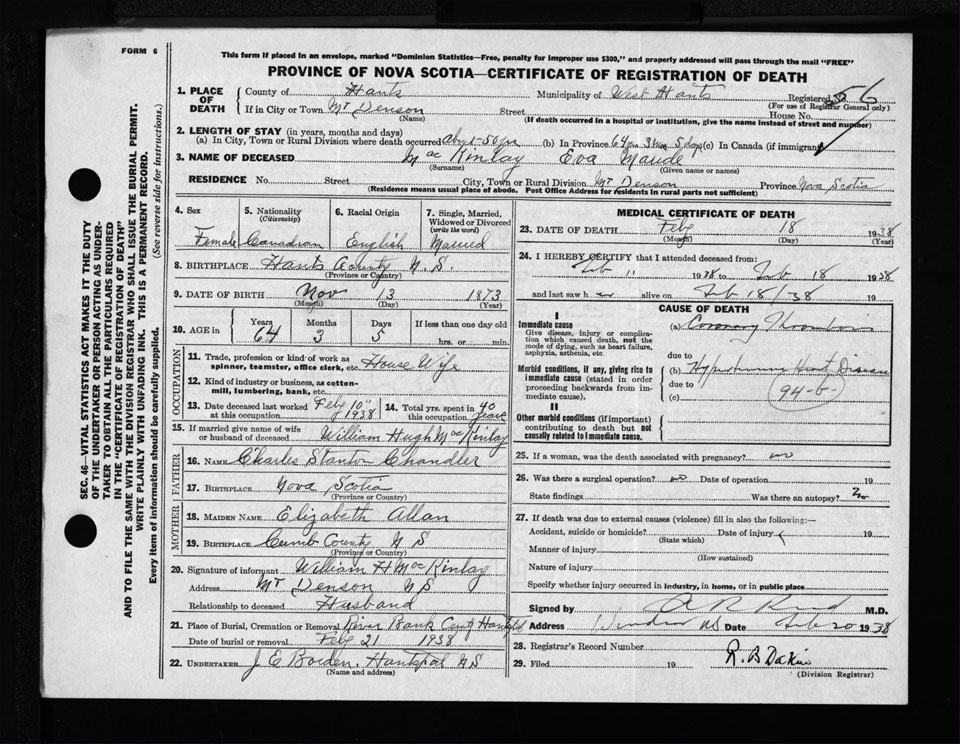 FORM 6
This form if placed in an envelope, marked "Dominion Statistics—Free, penalty for improper use $300," and properly addressed will pass through the mail "FREE"
PROVINCE OF NOVA SCOTIA—CERTIFICATE OF REGISTRATION OF DEATH
SEC. 46—VITAL STATISTICS ACT MAKES IT THE DUTY
OF THE UNDERTAKER OR PERSON ACTING AS UNDER-
TAKER TO OBTAIN ALL THE PARTICULARS REQUIRED
IN THE "CERTIFICATE OF REGISTRATION OF DEATH"
AND TO FILE THE SAME WITH THE DIVISION REGISTRAR WHO SHALL ISSUE THE BURIAL PERMIT.
WRITE PLAINLY WITH UNFADING INK. THIS IS A PERMANENT RECORD.
Every item of information should be carefully supplied. (See reverse side for instructions.)
1. PLACE OF DEATH
County of Hants Municipality of West Hants Registered No. 56
(For use of Registrar General only)
If in City or Town Mt Denson Street House No.
(Name) (If death occurred in a hospital or institution, give the name instead of street and number)
2. LENGTH OF STAY (in years, months and days)
(a) In City, Town or Rural Division where death occurred abt 50 yrs (b) In Province 64 yrs 3 mos 5 days (c) In Canada (if immigrant)
3. NAME OF DECEASED MacKinlay Eva Maude
(Surname) (Given name or names)
RESIDENCE No. Street City, Town or Rural Division Mt Denson Province Nova Scotia
(Residence means usual place of abode. Post Office Address for residents in rural parts not sufficient)
4. Sex
Female
5. Nationality
(Citizenship)
Canadian
6. Racial Origin
English
7. Single, Married, Widowed or Divorced
(write the word)
Married
8. BIRTHPLACE Hants County N.S.
(Province or Country)
9. DATE OF BIRTH Nov 13 1873
(Month) (Day) (Year)
10. AGE in Years Months Days If less than one day old
64 3 5 hrs. or min.
OCCUPATION
11. Trade, profession or kind of work as
spinner, teamster, office clerk, etc. House Wife
12. Kind of industry or business, as cotton-
mill, lumbering, bank, etc.
13. Date deceased last worked at this occupation Feby 10" 1938
14. Total yrs. spent in this occupation 40 years
15. If married give name of wife
or husband of deceased William Hugh MacKinlay
FATHER
16. NAME Charles Stanton Chandler
17. BIRTHPLACE Nova Scotia
(Province or Country)
MOTHER
18. MAIDEN NAME Elizabeth Allan
19. BIRTHPLACE Cumb County N S
(Province or Country)
20. Signature of informant William H MacKinlay
Address Mt Denson N S
Relationship to deceased Husband
21. Place of Burial, Cremation or Removal River Bank
Date of burial or removal Feby 21 1938
22. UNDERTAKER J E Borden. Hantsport NS
(Name and address)
MEDICAL CERTIFICATE OF DEATH
23. DATE OF DEATH Feby 18 1938
(Month) (Day) (Year)
24. I HEREBY CERTIFY that I attended deceased from:
Feb 11 1938 to Feb 18 1938
and last saw h alive on Feb 18/38 19
CAUSE OF DEATH
I
Immediate cause
Give disease, injury or complica-
tion which caused death, not the
mode of dying, such as heart failure,
asphyxia, asthenia, etc.
(a) Coronary Thrombosis
due to
Morbid conditions, if any, giving rise to
immediate cause (stated in order
proceeding backwards from im-
mediate cause).
(b) Hypertensive Heart Disease
due to
(c) 94-b
II
Other morbid conditions (if important)
contributing to death but not
causally related to immediate cause.
25. If a woman, was the death associated with pregnancy? no
26. Was there a surgical operation? no Date of operation 19
State findings Was there an autopsy? No
27. If death was due to external causes (violence) fill in also the following:—
Accident, suicide or homicide? Date of injury 19
(State which)
Manner of injury
(How sustained)
Nature of injury
Specify whether injury occurred in industry, in home, or in public place
Signed by M.D.
Address Windsor NS Date Feb 20 1938
28. Registrar's Record Number
29. Filed 19 R. B Dakin
(Division Registrar)